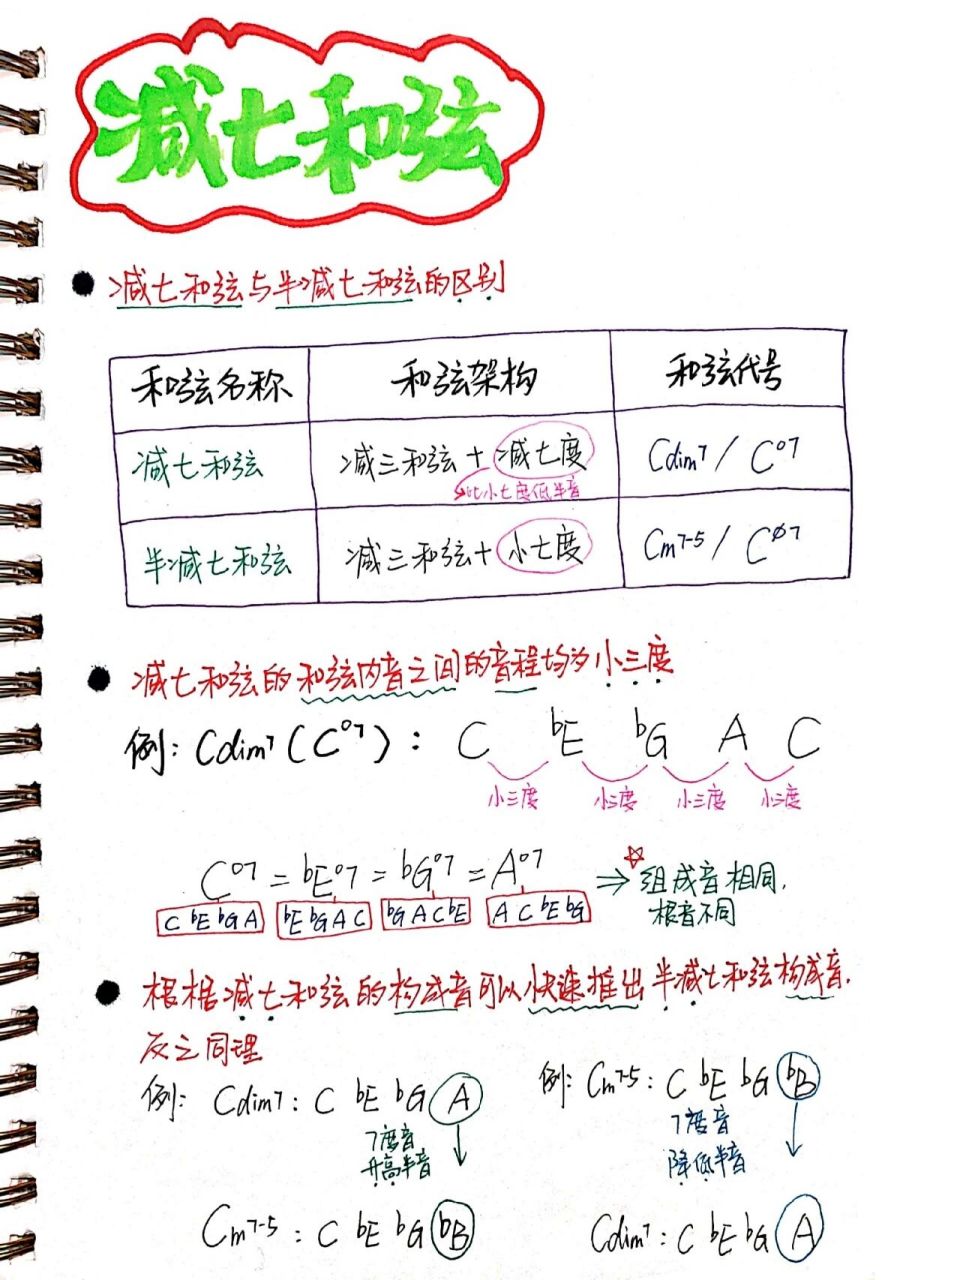 减七和弦
减七和弦与半减七和弦的区别
和弦名称 和弦架构 和弦代号
减七和弦 减三和弦 + 减七度 Cdim7 / C°7
比小七度低半音
半减七和弦 减三和弦 + 小七度 Cm7-5 / Cø7
减七和弦的和弦内音之间的音程均为小三度
例: Cdim7 (C°7): C bE bG A C
小三度 小三度 小三度 小三度
C°7 = bE°7 = bG°7 = A°7 ⇒ ☆ 组成音相同,
C bE bG A bE bG A C bG A C bE A C bE bG 根音不同
根据减七和弦的构成音可以快速推出半减七和弦构成音,
反之同理
例: Cdim7: C bE bG A
7度音
升高半音
Cm7-5: C bE bG bB
例: Cm7-5: C bE bG bB
7度音
降低半音
Cdim7: C bE bG A